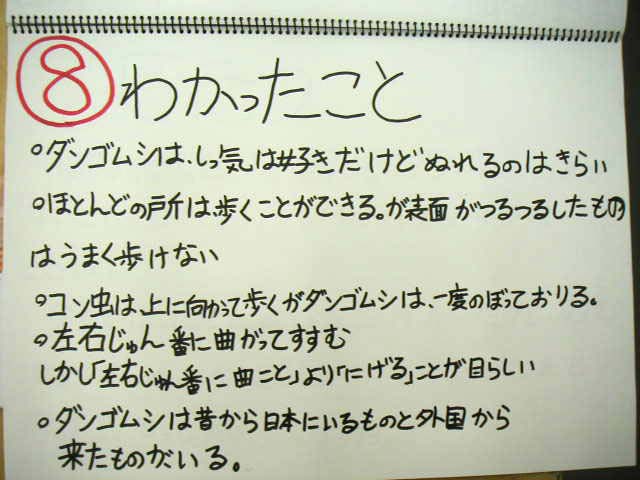 ⑧わかったこと
○ダンゴムシは、しっ気は好きだけどぬれるのはきらい
○ほとんどの戸所は、歩くことができる。が表面がつるつるしたもの
はうまく歩けない
○コン虫は、上に向かって歩くがダンゴムシは、一度のぼっており る。
○左右じゅん番に曲がってすすむ
しかし「左右じゅん番に曲こと」より「にげる」ことが目らしい
○ダンゴムシは昔から日本にいるものと外国から
来たものがいる。